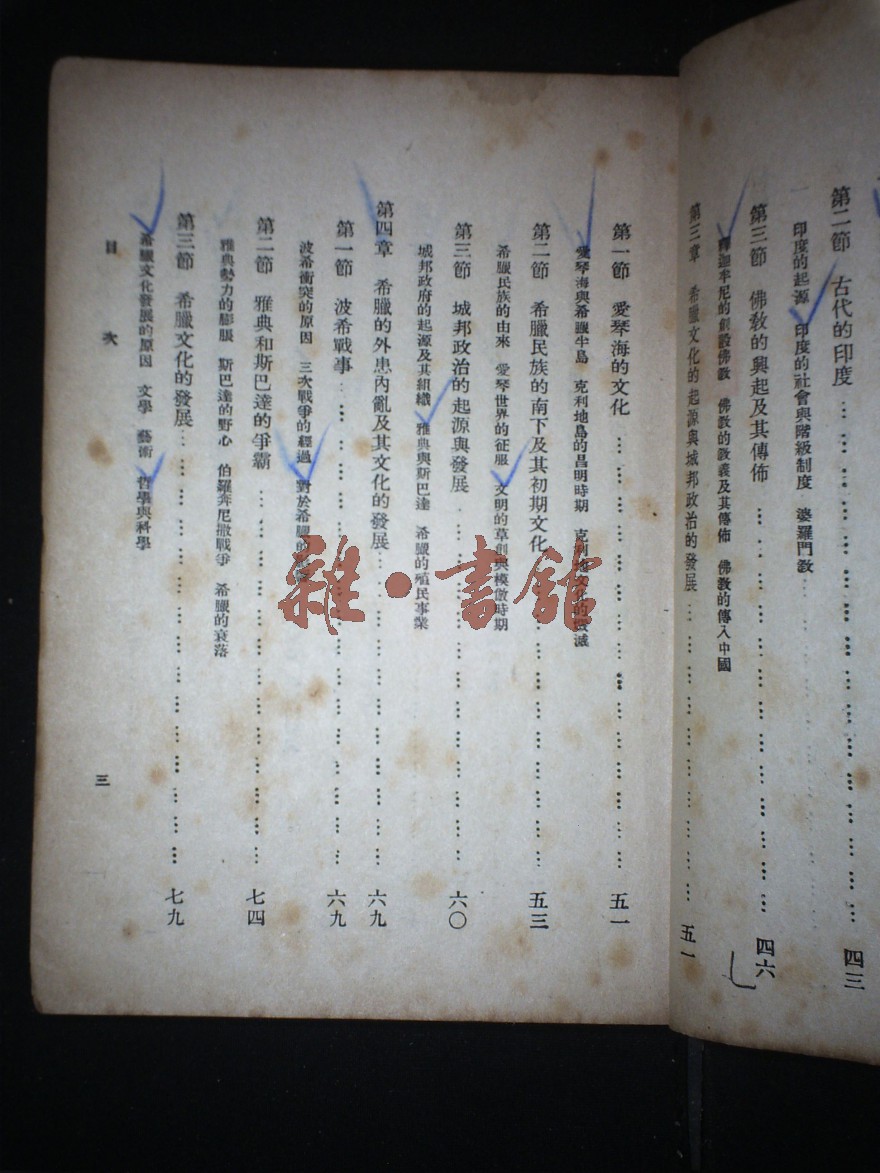 第二節 古代的印度 … … … … … … … … … … … 四三
印度的起源 印度的社會與階級制度 婆羅門教
第三節 佛教的興起及其傳佈 … … … … … … … … … 四六
釋迦牟尼的創設佛教 佛教的教義及其傳佈 佛教的傳入中國
第三章 希臘文化的起源與城邦政治的發展 … … … … … … … 五一
第一節 愛琴海的文化 … … … … … … … … … … … 五一
愛琴海與希臘半島 克利地島的昌明時期 克利地文化的毀滅
第二節 希臘民族的南下及其初期文化 … … … … … … … 五三
希臘民族的由來 愛琴世界的征服 文明的草創與模倣時期
第三節 城邦政治的起源與發展 … … … … … … … … … 六〇
城邦政府的起源及其組織 雅典與斯巴達 希臘的殖民事業
第四章 希臘的外患內亂及其文化的發展 … … … … … … … 六九
第一節 波希戰事 … … … … … … … … … … … … 六九
波希衝突的原因 三次戰爭的經過 對於希臘的
第二節 雅典和斯巴達的爭霸 … … … … … … … … … 七四
雅典勢力的膨脹 斯巴達的野心 伯羅奔尼撒戰爭 希臘的衰落
第三節 希臘文化的發展 … … … … … … … … … … 七九
希臘文化發展的原因 文學 藝術 哲學與科學
目 次
三
雜·書館